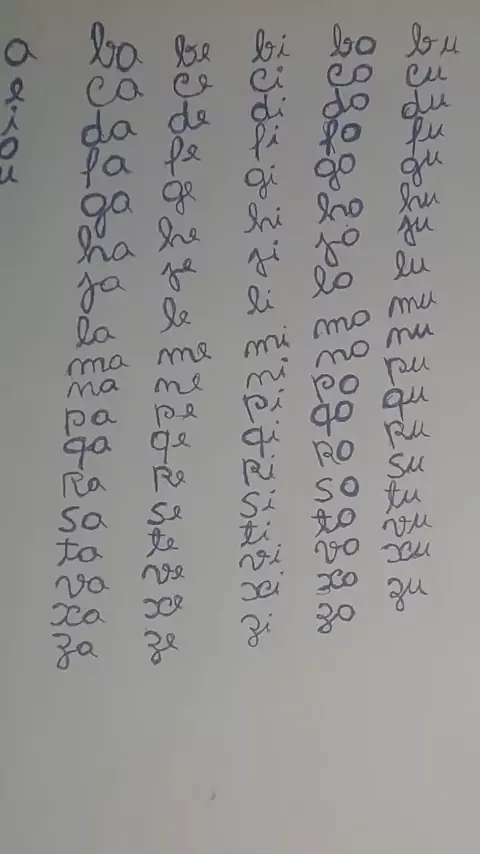 a ba be bi bo bu
e ca ce ci co cu
i da de di do du
o fa fe fi fo fu
u ga ge gi go gu
ha he hi ho hu
ja je ji jo ju
la le li lo lu
ma me mi mo mu
na ne ni no nu
pa pe pi po pu
qa qe qi qo qu
Ra Re Ri Ro Ru
sa se si so su
ta te ti to tu
va ve vi vo vu
xa xe xi xo xu
za ze zi zo zu